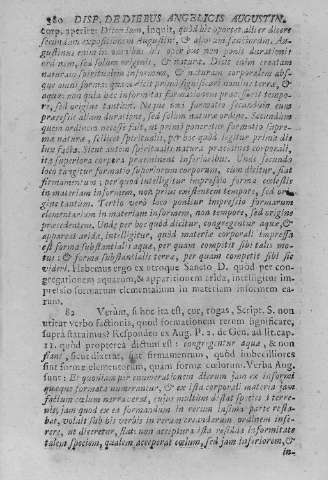 380 DISP. DE DIEBUS ANGELICIS AUGUSTIN.
corp. aperite: Dicendum, inquit, quod hic oportet aliter dicere
secundum expositionem Augustini, & aliorum sanctorum. Au-
gustinus enim in his omnibus hoc non ponit durationis
ordinem, sed solum originis, & naturæ. Dicit enim creatam
naturam spiritualem informem, & naturam corporalem abs-
que omni forma: quæ dicit primo significari nomine terræ, &
aquæ: non quia hæc informitas formationem præcesserit tempo-
re, sed origine tantum. Neque una formatio secundum eum
præcessit aliam duratione, sed solum naturæ ordine. Secundum
quem ordinem necesse fuit, ut primò poneretur formatio supre-
mæ naturæ, scilicet spiritualis, per hoc quod legitur prima die
lux facta. Sicut autem spiritualis natura præeminet corporali,
ita superiora corpora præeminent inferioribus. Unde secundo
loco tangitur formatio superiorum corporum, cum dicitur, fiat
firmamentum; per quod intelligitur impressio formæ cœlestis
in materiam informem, non prius existentem tempore, sed ori-
gine tantum. Tertio verò loco ponitur impressio formarum
elementarium in materiam informem, non tempore, sed origine
præcedentem. Unde per hoc quod dicitur, congregentur aquæ, &
appareat arida, intelligitur, quod materiæ corporali impressa
est forma substantialis aquæ, per quam competit sibi talis mo-
tus; & forma substantialis terræ, per quam competit sibi sic
videri. Habemus ergo ex utroque Sancto D. quod per con-
gregationem aquarum, & apparitionem arida, intelligitur im-
pressio formarum elementalium in materiam infor-
mem.
82 Verùm, si hoc ita est, cur, rogas, Script. S. non
utitur verbo factionis, quod formationem rerum significare,
supra statuimus? Respondeo ex Aug. P. 2. de Gen. ad lit. cap.
11. quod propterea dictum est: congregentur aquæ, & non
fiant, sicut dixerat, fiat firmamentum, quòd imbecilliores
sint formæ elementorum, quàm forma cœlorum. Verba Aug.
sunt: Et quoniam per enumerationem dierum jam ex informi
quoque formata numerantur, & ex ista corporali materia jam
factum cœlum narraverat, cujus multum distat species à terre-
nis; jam quod ex ea formandum in rerum infima parte resta-
bat, noluit sub his verbis in rerum creandarum ordinem infe-
rere, ut diceretur, fiat: non acceptura ista residua informitate
talem speciem, qualem acceperat cœlum, sed jam inferiorem, &
in-